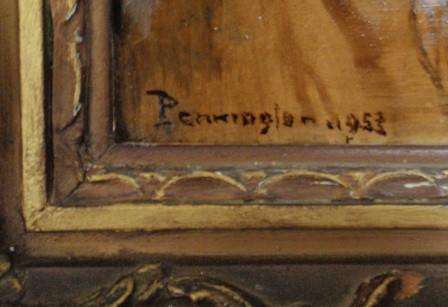 Pennington 1953